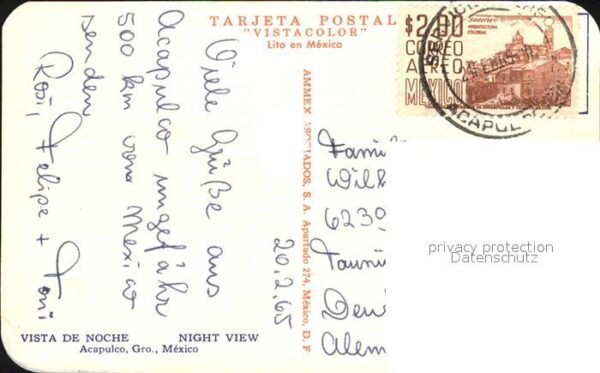 TARJETA POSTAL
"VISTACOLOR"
Lito en México
Viele Grüße aus
Acapulco ungefähr
500 km von Mexico
senden
Rosi, Felipe + Toni
20.2.65
VISTA DE NOCHE NIGHT VIEW
Acapulco, Gro., México
AMMEX ASOCIADOS, S. A. Apartado 274, México, D. F
$2.00
ARQUITECTURA
COLONIAL
CORREO
AEREO
MEXICO
ACAPUL
Fami
Wil
6239
Taunu
Alem
privacy protection
Datenschutz